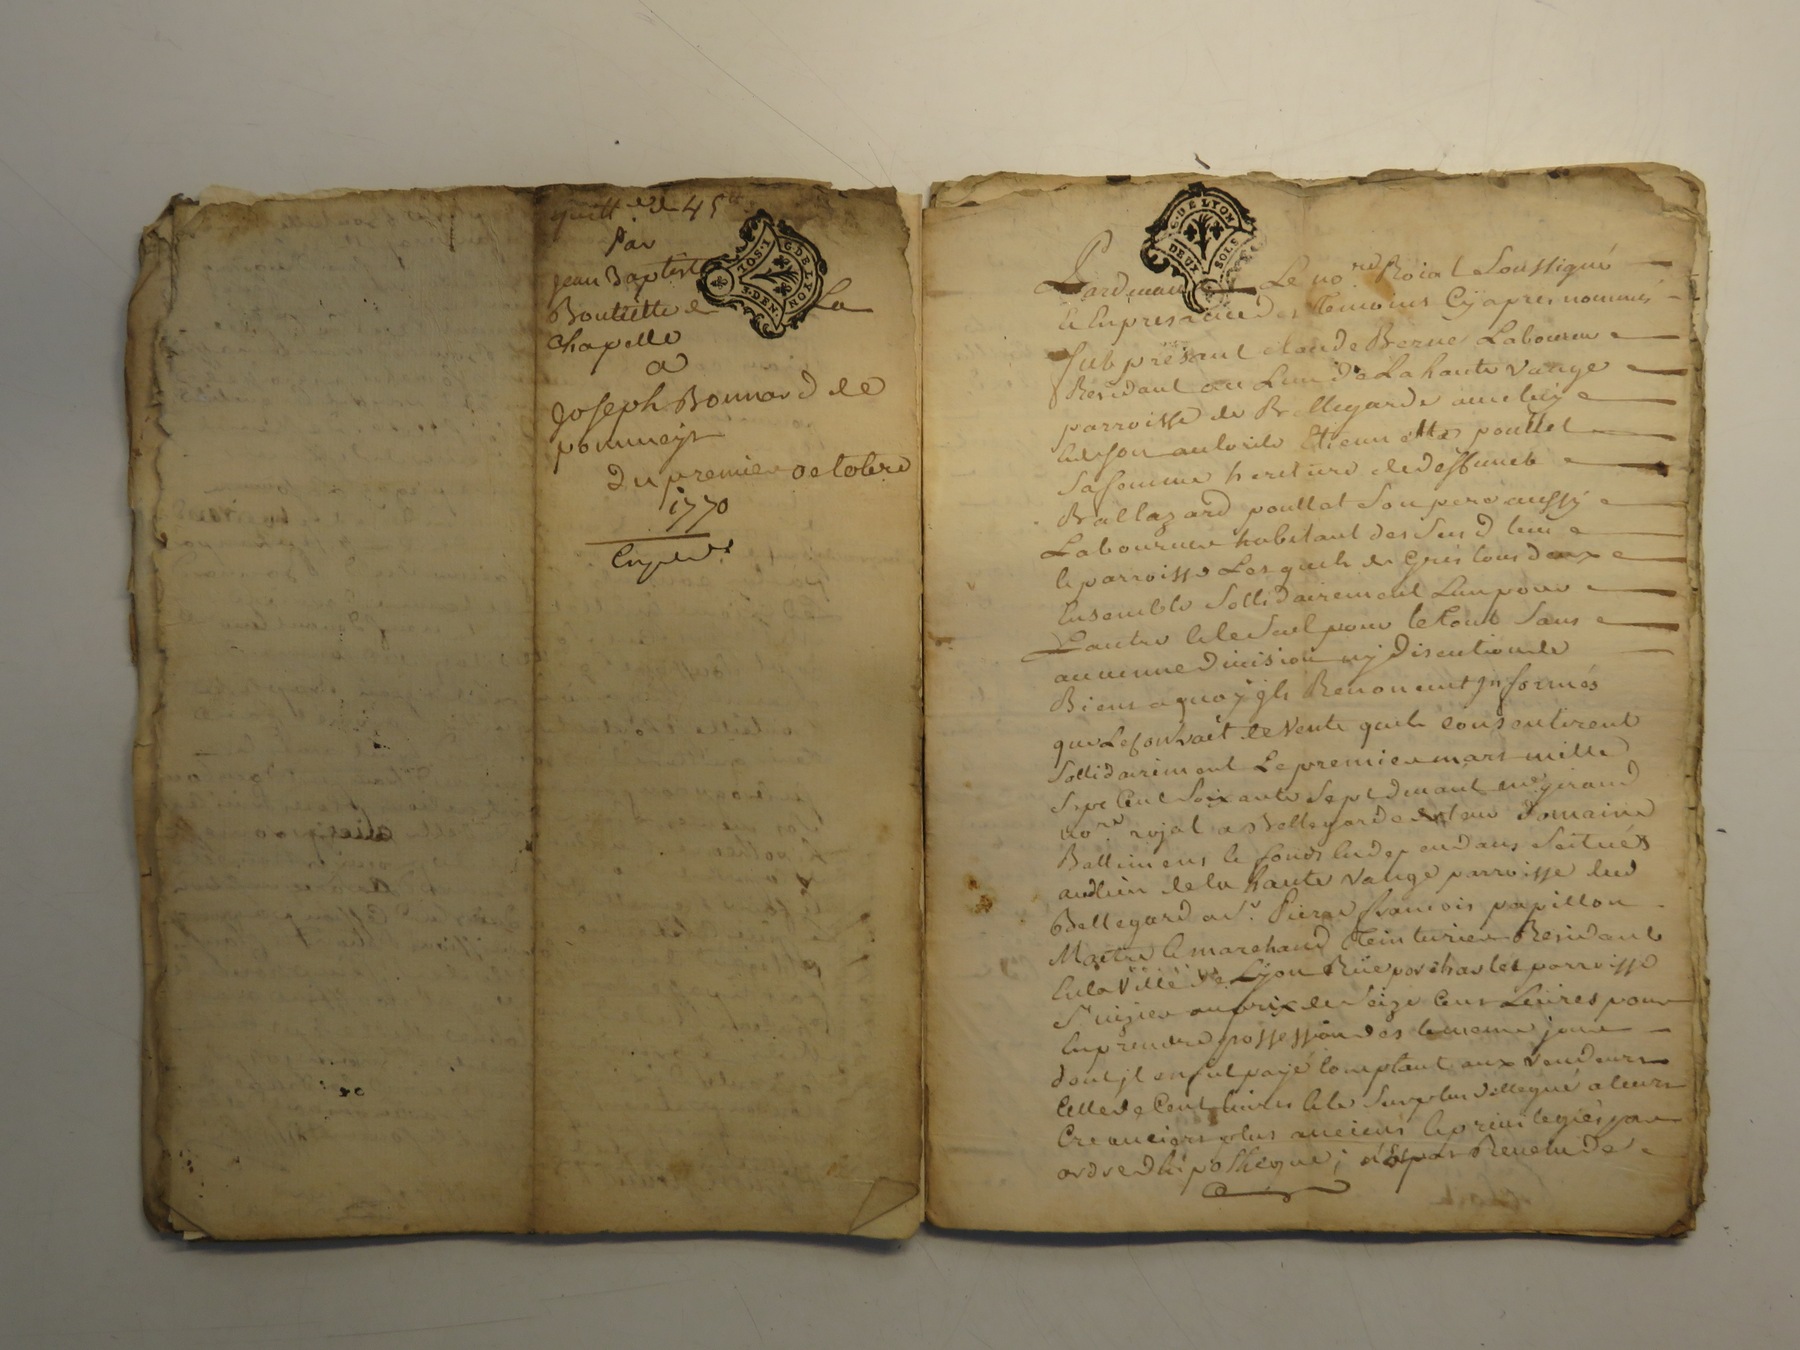 quitt.ce de 45#
Par
jean Baptiste
Boutiette de La
chapelle
a
Joseph Bonnard de
pommeys
du premier octobre
1770
Expede.
G. DE LYON
1. SOL
3. DEN
G. DE LYON
DEUX SOLS
Pardevant Le no.re Roial Soussigné
Et En presence des Temoins Cy apres nommés
fut présant claude Berne Laboureur
Residant au Lieu de La haute Vange
parroisse de Bellegarde
Et de son autorité Etiennette pouttet
Sa femme heritiere de deffunct
Baltazard pouttet Son pere aussy
Laboureur habitant des Susd. lieu
et parroisse Lesquels de Gres tous deux
Ensemble Sollidairement L'un pour
L'autre et le Seul pour le tout Sans
aucunne division ny discution de
Biens a quoy ils Renoncent Informés
que Le contrait de Vente quils consentirent
Sollidairement Le premier mars mille
Sept Cent Soixante Sept devant me. girand
no.re rojal a Bellegarde de leur Domaine
Battimens et fonds En dependans Scitués
audit lieu de la haute Vange parroisse dud
Bellegard a Sr. Pierre francois papillon
Maitre et marchand Teinturier Residant
En la Ville de Lyon Rüe porcharlet parroisse
St nizier au prix de Seize Cent Livres pour
En prendre possession des le meme jour
dont jl en fut payé Comptant aux Vendeurs
Celle de Cent Livres et le Surplus dellegué a leurs
Creanciers plus anciens et privilegiés par
ordre d'hipotheque;